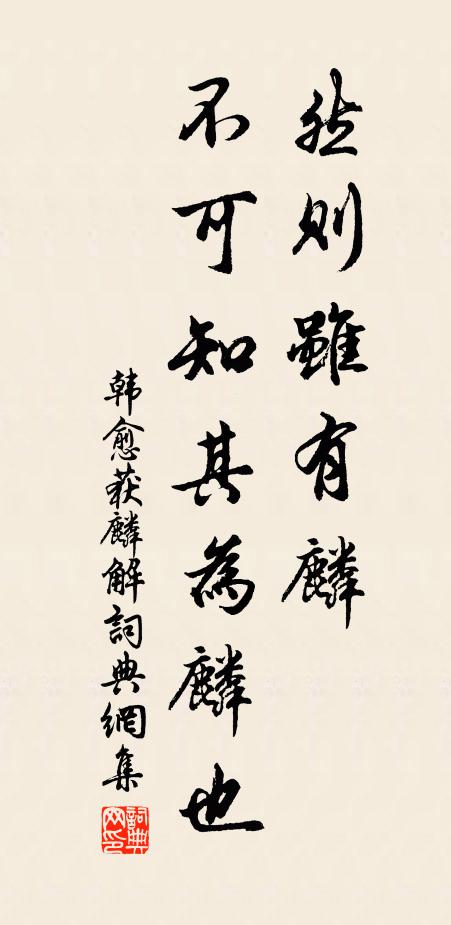 然则雖有麟
不可知其為麟也
韩愈获麟解詞典網集
詞典网印